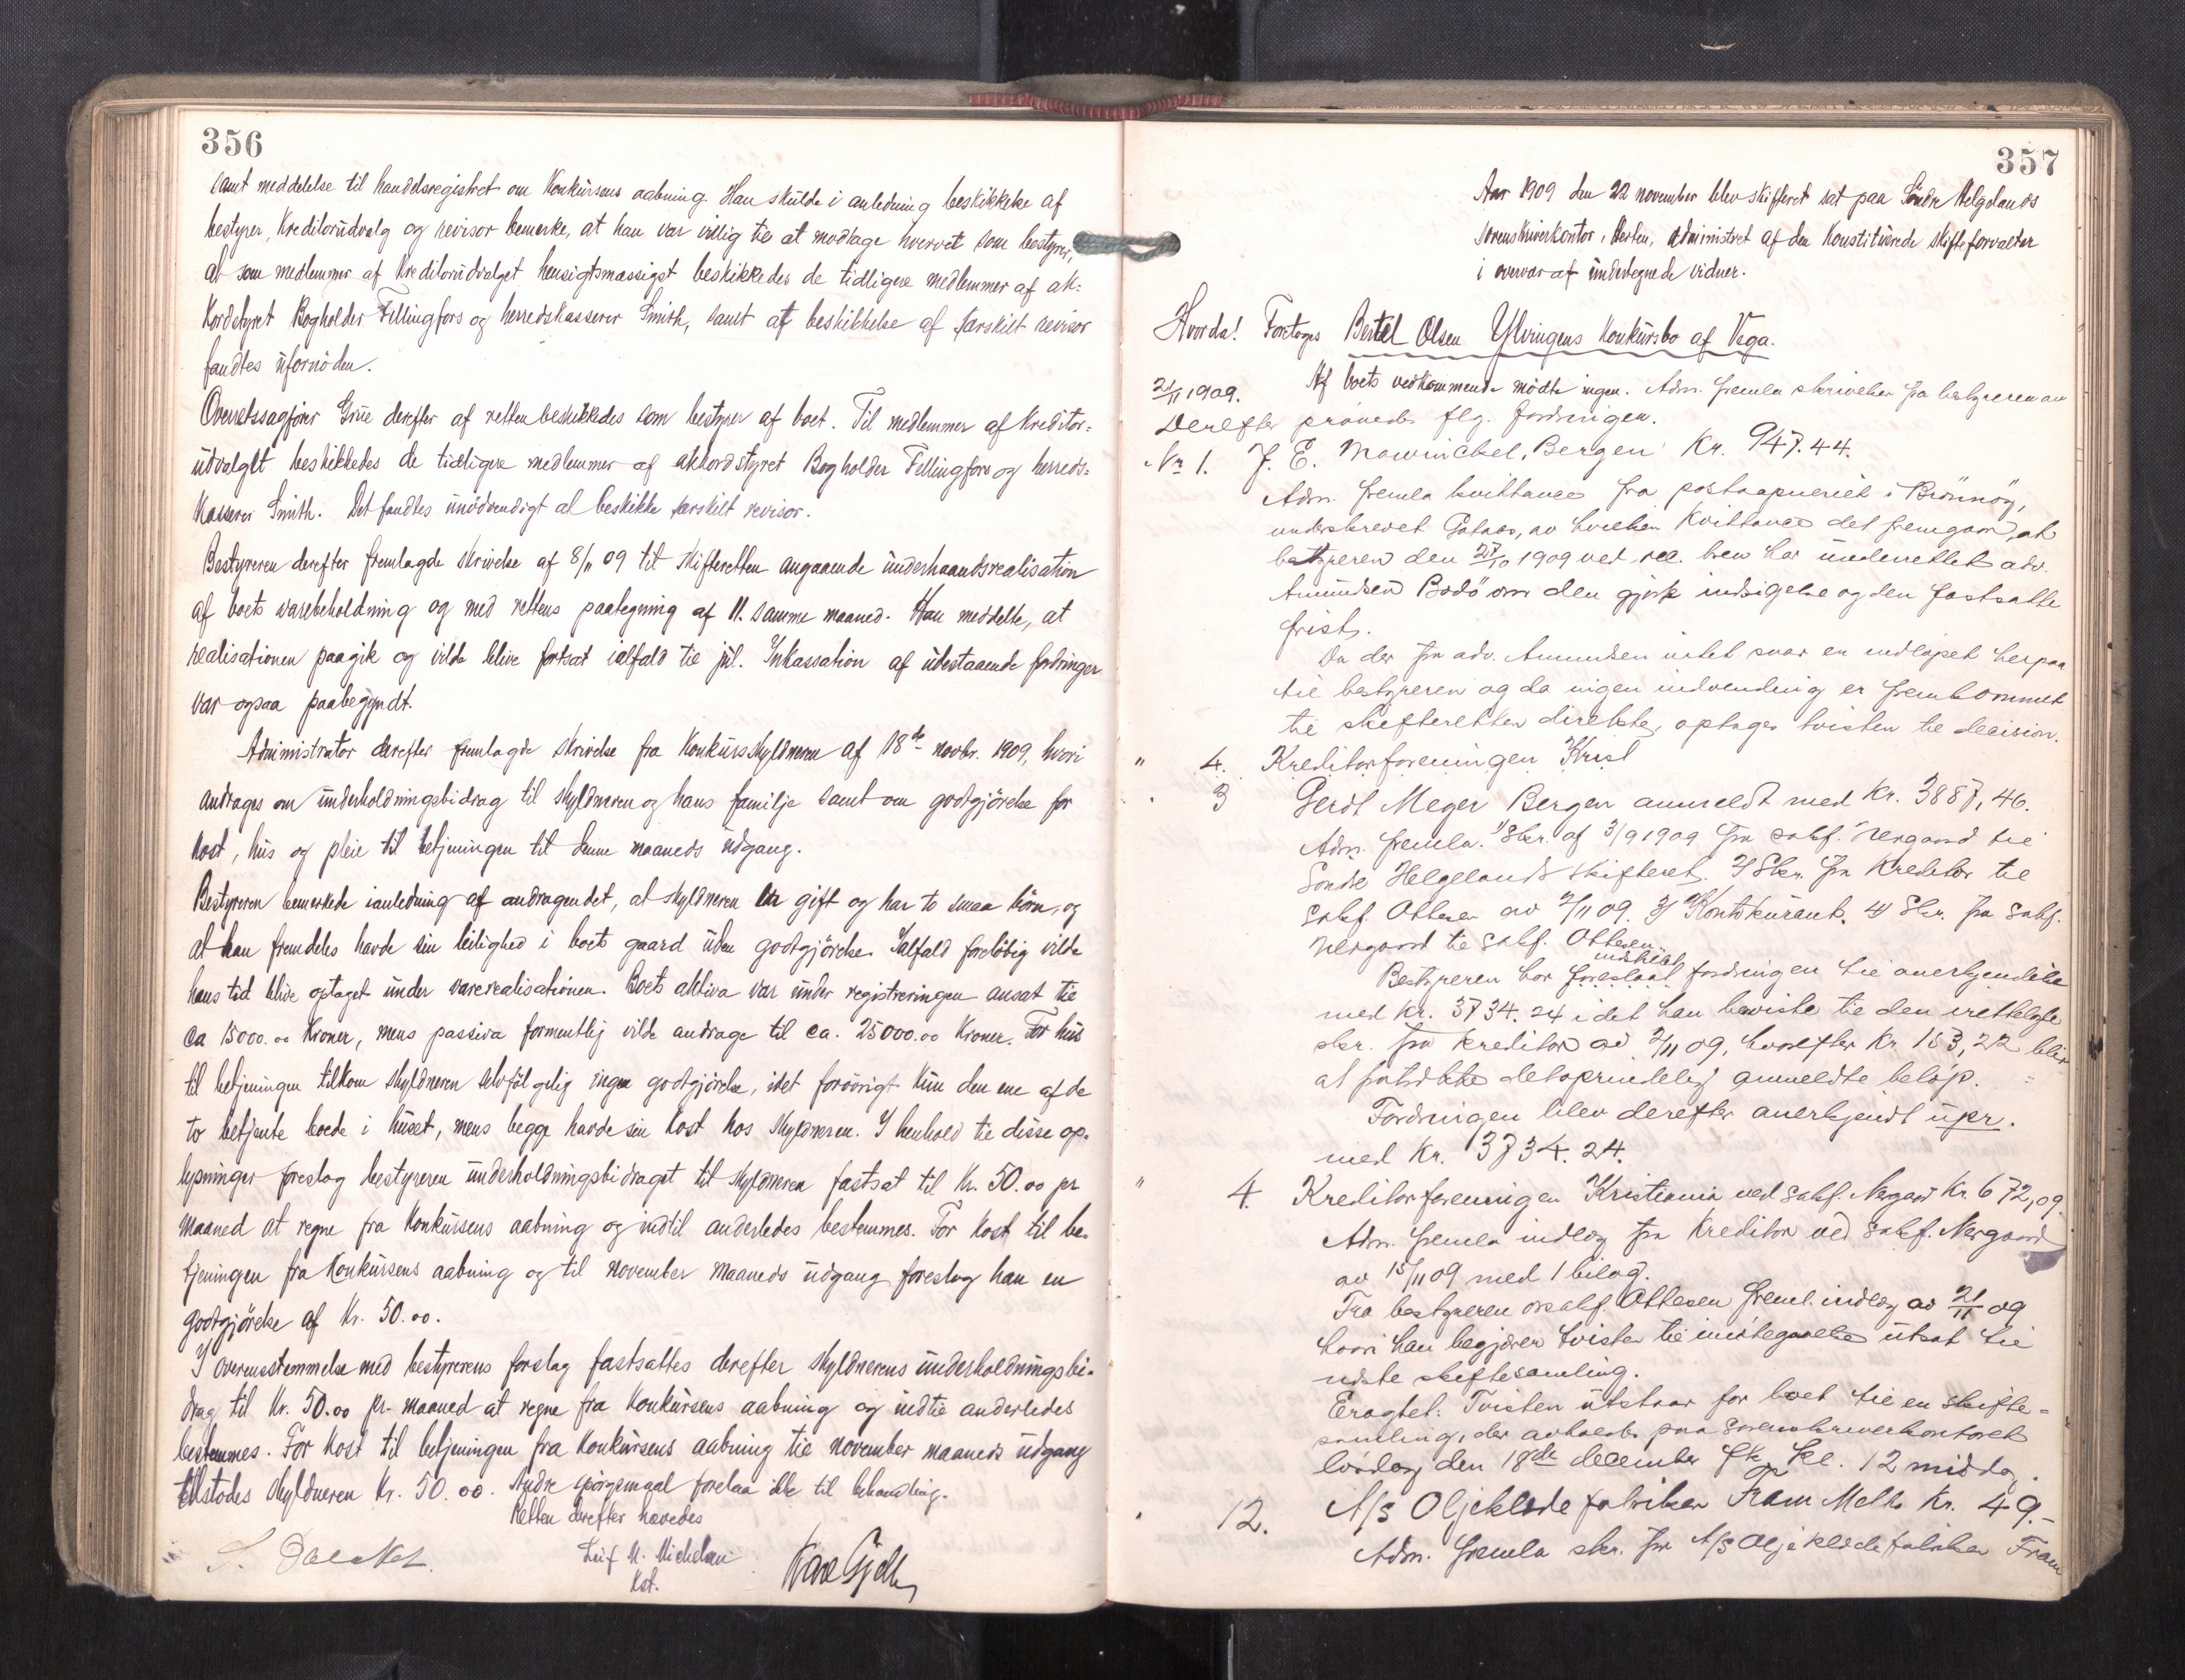 356
samt meddelelse til handelsregistret om Konkursens aabning. Han skulde i anledning beskikkelse af
bestyrer, Kreditorudvalg og revisor bemerke, at han var villig til at modtage hvervet som bestyrer,
at som medlemmer af Kreditorudvalget hensigtsmæssigst beskikkedes de tidligere medlemmer af ak-
kordstyret Bogholder Fellingfors og herredskasserer Smith, samt at beskikkelse af særskilt revisor
fandtes ufornöden.
Overretssagförer Grüe derefter af retten beskikkedes som bestyrer af boet. Til medlemmer af Kreditor-
udvalget beskikkedes de tidligere medlemmer af akkordstyret Bogholder Fellingfors og herreds-
kasserer Smith. Det fandtes unödvendigt at beskikke særskilt revisor.
Bestyreren derefter fremlagde skrivelse af 8/11 09 til skifteretten angaaende underhaandsrealisation
af boets varebeholdning og med rettens paategning af 11. samme maaned. Han meddelte, at
realisationen paagik og vilde blive fortsat ialfald til jul. Inkassation af udestaaende fordringer
var ogsaa paabegyndt.
Administrator derefter fremlagde skrivelse fra Konkursskyldneren af 18de novbr. 1909, hvori
andrages om underholdningsbidrag til skyldneren og hans familje samt om godtgjörelse for
kost, hus og pleie til betjeningen til denne maaneds udgang.
Bestyreren bemerkede ianledning af andragendet, at skyldneren er gift og har to smaa börn, og
at han fremdeles havde sin leilighed i boets gaard uden godtgjörelse. Ialfald forelöbig vilde
hans tid blive optaget under varerealisationen. Boets aktiva var under registreringen ansat til
ca 15000.00 Kroner, mens passiva formentlig vilde andrage til ca. 25000.00 Kroner. For hus
til betjeningen tilkom skyldneren selvfölgelig ingen godtgjörelse, idet forövrigt kun den ene af de
to betjente boede i huset, mens begge havde sin kost hos skyldneren. I henhold til disse op-
lysninger foreslog bestyreren underholdningsbidraget til skyldneren fastsat til Kr. 50.00 pr
maaned at regne fra Konkursens aabning og indtil anderledes bestemmes. For kost til be-
tjeningen fra Konkursens aabning og til november maaneds udgang foreslog han en
godtgjörelse af Kr. 50.00.
I overensstemmelse med bestyrerens forslag fastsattes derefter skyldnerens underholdningsbi-
drag til Kr. 50.00 pr. maaned at regne fra Konkursens aabning og indtil anderledes
bestemmes. For kost til betjeningen fra Konkursens aabning til november maaneds udgang
tilstodes skyldneren Kr. 50.00. Andre spörgsmaal forelaa ikke til behandling.
Retten derefter hævedes
Leif M. Michelsen
Kst.
357
Aar 1909 den 22 november blev skifteret sat paa Söndre Helgelands
sorenskriverkontor, Nesten, administret af den Konstituerede skifteforvalter
i overvær af undertegnede vidner.
Hvorda! Foretoges Bertel Olsen Ylvingens Konkursbo af Vega.
Af boets vedkommende mödte ingen. Adm. fremla skrivelse fra bestyreren av
21/11 1909.
Derefter prövedes flg. fordringer.
Nr 1. J. E. Mowinckel, Bergen Kr. 947.44.
Adm. fremla kvittance fra postaapneriet i Brönnöy,
underskrevet, av hvilken Kvittance det fremgaar, at
bestyreren den 27/10 1909 ved rec. brev har underrettet adv.
Amundsen Bodö om den gjorte indsigelse og den fastsatte
frist.
Da der fra adv. Amundsen intet svar er indlöpet herpaa
til bestyreren og da ingen indvending er fremkommet
til skifteretten direkte, optages tvisten til decision.
" 4. Kreditorforeningen Krist
" 3 Gerdt Meyer Bergen anmeldt med Kr. 3887,46.
Adm. fremla. 1) Skr. af 3/9 1909 fra sakf. Nergaard til
Söndre Helgelands skifteret. 2) Skr. fra Kreditor til
sakf. Ottesen av 2/11 09. 3) Kontokurant. 4) Skr. fra sakf.
Nergaard til sakf. Ottesen.
indstillet
Bestyreren har foreslaat fordringen til anerkjendelse
med Kr. 3734.24 idet han henviste til den irettelagte
skr. fra kreditor av 2/11 09, hvorefter Kr. 153,22 blir
at fratrække det oprindelig anmeldte belöp.
Fordringen blev derefter anerkjendt upr.
med Kr. 3734.24.
" 4. Kreditorforeningen Kristiania ved sakf. Nergaard Kr 672,09.
Adm. fremla indlæg fra Kreditor ved sakf. Nergaard
av 15/11 09 med 1 bilag.
Fra bestyreren orsakf. Ottesen freml. indlæg av 21/11 09
hvori han begjærer tvisten til imötegaaelse utsat til
næste skiftesamling.
Eragtet: Tvisten utstaar for boet til en skifte-
samling, der avholdes paa sorenskriverkontoret
lördag den 18de december kl. 12 middag.
" 12. A/S Oljeklædefabriken Fram Kr. 49.-
Adm. fremla skr. fra A/S Oljeklædefabriken Fram